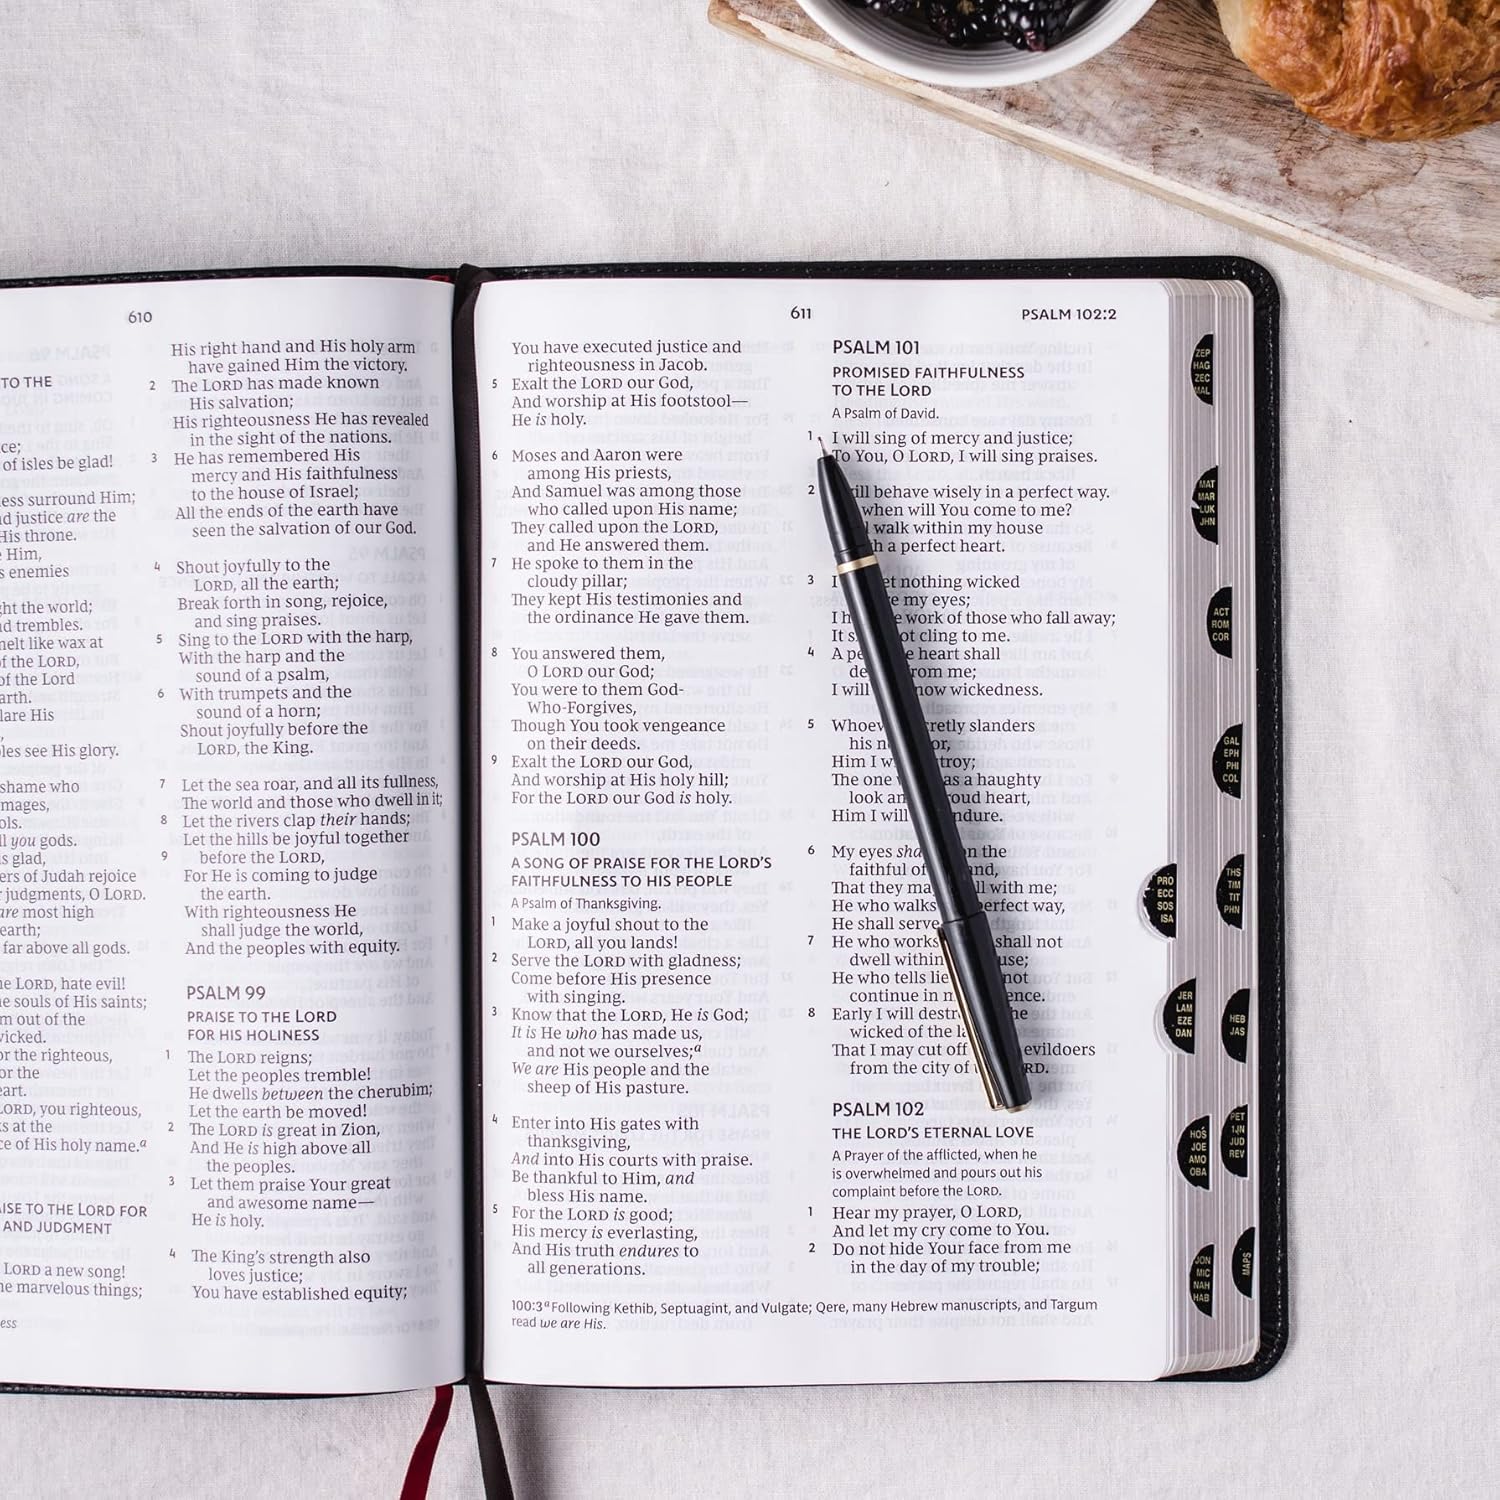 610
TO THE
ce;
of isles be glad!
ess surround Him;
d justice are the
His throne.
Him,
s enemies
ght the world;
d trembles.
melt like wax at
of the LORD,
of the Lord
arth.
lare His
les see His glory.
shame who
mages,
ols.
ll you gods.
s glad,
ers of Judah rejoice
r judgments, O LORD.
are most high
earth;
far above all gods.
e LORD, hate evil!
e souls of His saints;
m out of the
wicked.
or the righteous,
or the
eart.
LORD, you righteous,
ks at the
ce of His holy name.a
ISE TO THE LORD FOR
AND JUDGMENT
LORD a new song!
e marvelous things;
ess
His right hand and His holy arm
have gained Him the victory.
2 The LORD has made known
His salvation;
His righteousness He has revealed
in the sight of the nations.
3 He has remembered His
mercy and His faithfulness
to the house of Israel;
All the ends of the earth have
seen the salvation of our God.
4 Shout joyfully to the
LORD, all the earth;
Break forth in song, rejoice,
and sing praises.
5 Sing to the LORD with the harp,
With the harp and the
sound of a psalm,
6 With trumpets and the
sound of a horn;
Shout joyfully before the
LORD, the King.
7 Let the sea roar, and all its fullness,
The world and those who dwell in it;
8 Let the rivers clap their hands;
Let the hills be joyful together
9 before the LORD,
For He is coming to judge
the earth.
With righteousness He
shall judge the world,
And the peoples with equity.
PSALM 99
PRAISE TO THE LORD
FOR HIS HOLINESS
1 The LORD reigns;
Let the peoples tremble!
He dwells between the cherubim;
Let the earth be moved!
2 The LORD is great in Zion,
And He is high above all
the peoples.
3 Let them praise Your great
and awesome name—
He is holy.
4 The King's strength also
loves justice;
You have established equity;
611
PSALM 102:2
You have executed justice and
righteousness in Jacob.
5 Exalt the LORD our God,
And worship at His footstool—
He is holy.
6 Moses and Aaron were
among His priests,
And Samuel was among those
who called upon His name;
They called upon the LORD,
and He answered them.
7 He spoke to them in the
cloudy pillar;
They kept His testimonies and
the ordinance He gave them.
8 You answered them,
O LORD our God;
You were to them God-
Who-Forgives,
Though You took vengeance
on their deeds.
9 Exalt the LORD our God,
And worship at His holy hill;
For the LORD our God is holy.
PSALM 100
A SONG OF PRAISE FOR THE LORD'S
FAITHFULNESS TO HIS PEOPLE
A Psalm of Thanksgiving.
1 Make a joyful shout to the
LORD, all you lands!
2 Serve the LORD with gladness;
Come before His presence
with singing.
3 Know that the LORD, He is God;
It is He who has made us,
and not we ourselves;a
We are His people and the
sheep of His pasture.
4 Enter into His gates with
thanksgiving,
And into His courts with praise.
Be thankful to Him, and
bless His name.
5 For the LORD is good;
His mercy is everlasting,
And His truth endures to
all generations.
PSALM 101
PROMISED FAITHFULNESS
TO THE LORD
A Psalm of David.
1 I will sing of mercy and justice;
To You, O LORD, I will sing praises.
2 will behave wisely in a perfect way.
when will You come to me?
walk within my house
a perfect heart.
3 I nothing wicked
my eyes;
I work of those who fall away;
It cling to me.
4 A heart shall
from me;
I will wickedness.
5 slanders
his
Him I
The one a haughty
look heart,
Him I will
6 My eyes the
faithful of
That they with me;
He who walks perfect way,
He shall serve
7 He who works shall not
dwell within
He who tells not
continue in
8 Early I will the
wicked of the
That I may cut off evildoers
from the city of
PSALM 102
THE LORD'S ETERNAL LOVE
A Prayer of the afflicted, when he
is overwhelmed and pours out his
complaint before the LORD.
1 Hear my prayer, O LORD,
And let my cry come to You.
2 Do not hide Your face from me
in the day of my trouble;
100:3 a Following Kethib, Septuagint, and Vulgate; Qere, many Hebrew manuscripts, and Targum
read we are His.
PRO
ECC
SOS
ISA
JER
LAM
EZE
DAN
HOS
JOE
AMO
OBA
JON
MIC
NAH
HAB
ZEP
HAG
ZEC
MAL
MAT
MAR
LUK
JHN
ACT
ROM
COR
GAL
EPH
PHI
COL
THS
TIM
TIT
PHN
HEB
JAS
PET
1JN
JUD
REV
MAPS